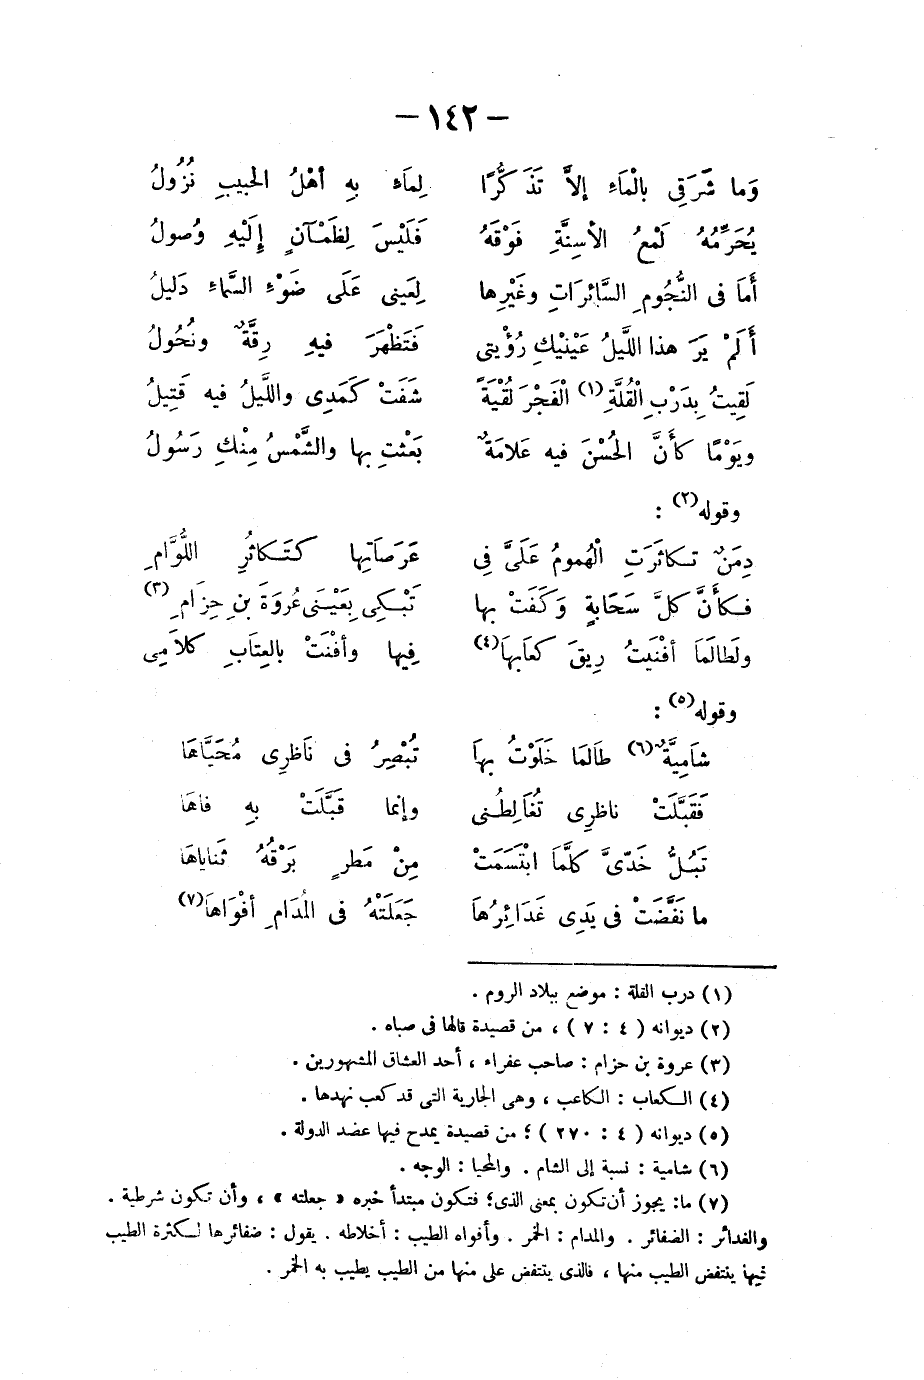 — ١٤٢ —
وَما شَرَقِى بِالْمَاءِ إلاَّ تَذَكُّرًا لِمَاءٍ بِهِ أهْلُ الحبِيبِ نُزُولُ
يُحَرِّمُهُ لَمْعُ الأسِنَّةِ فَوْقَهُ فَلَيْسَ لِظَمْآنٍ إِلَيْهِ وُصولُ
أمَا فى النُّجُومِ السَّائِرَاتِ وغَيْرِها لِعَينى عَلَى ضَوْءِ السَّماءِ دَلِيلُ
أَلَمْ يَرَ هذا اللَّيلُ عَيْنَيْكِ رُؤْيتى فَتَظْهَرَ فيهِ رِقَّةٌ ونُحُولُ
لَقِيتُ بِدَرْبِ الْقُلَّةِ(١) الْفَجْرَ لَقْيَةً شَفَتْ كَمَدِى واللَّيلُ فيه قَتِيلُ
ويَوْمًا كأَنَّ الحُسْنَ فيه عَلامَةٌ بَعَثْتِ بِها والشَّمْسُ مِنْكِ رَسُولُ
وقوله(٢) :
دِمَنٌ تـكاثَرَتِ الْهُمومُ عَلَىَّ فِى عَرَصَاتِها كَتَـكاثُرِ اللُّوَّامِ
فـكأَنَّ كلَّ سَحَابةٍ وَكَفَتْ بها تَبْـكِى بِعَيْنَى عُروَةَ بنِ حِزَامِ(٣)
ولَطَالَمَا أفْنَيْتُ رِيقَ كَعَابِهاَ(٤) فِيها وأفْنَتْ بالعِتَابِ كلاَمِى
وقوله(٥) :
شاَمِيَّةٌ(٦) طَالَمَا خَلَوْتُ بِهاَ تُبْصِرُ فى نَاظرِى مُحَيَّاهَا
فَقَبَّلَتْ ناظرِى تُغَالِطُـنى وإنما قَبَّلَتْ بِهِ فاهَا
تَبُلُّ خَدّىَّ كلَّمَا ابْتَسَمَتْ مِنْ مَطرٍ بَرْقُهُ ثَناياهَا
ما نَفَّضَتْ فى يَدِى غَدَائِرُهَا جَعَلَتْهُ فى المُدَامِ أفْوَاهاَ(٧)
(١) درب القلة : موضع ببلاد الروم .
(٢) ديوانه ( ٤ : ٧ ) ، من قصيدة قالها فى صباه .
(٣) عروة بن حزام : صاحب عفراء ، أحد العشاق المشهورين .
(٤) الـكعاب : الـكاعب ، وهى الجارية التى قد كعب نهدها .
(٥) ديوانه ( ٤ : ٢٧٠ ) ؛ من قصيدة يمدح فيها عضد الدولة .
(٦) شامية : نسبة إلى الشام . والمحيا : الوجه .
(٧) ما: يجوز أن تكون بمعنى الذى؛ فتكون مبتدأ خبره « جعلته » ، وأن تكون شرطية .
والغدائر : الضفائر . والمدام : الخمر . وأفواه الطيب : أخلاطه . يقول : ضفائرها لـكثرة الطيب
فيها ينتفض الطيب منها ، فالذى ينتفض على منها من الطيب يطيب به الخمر .